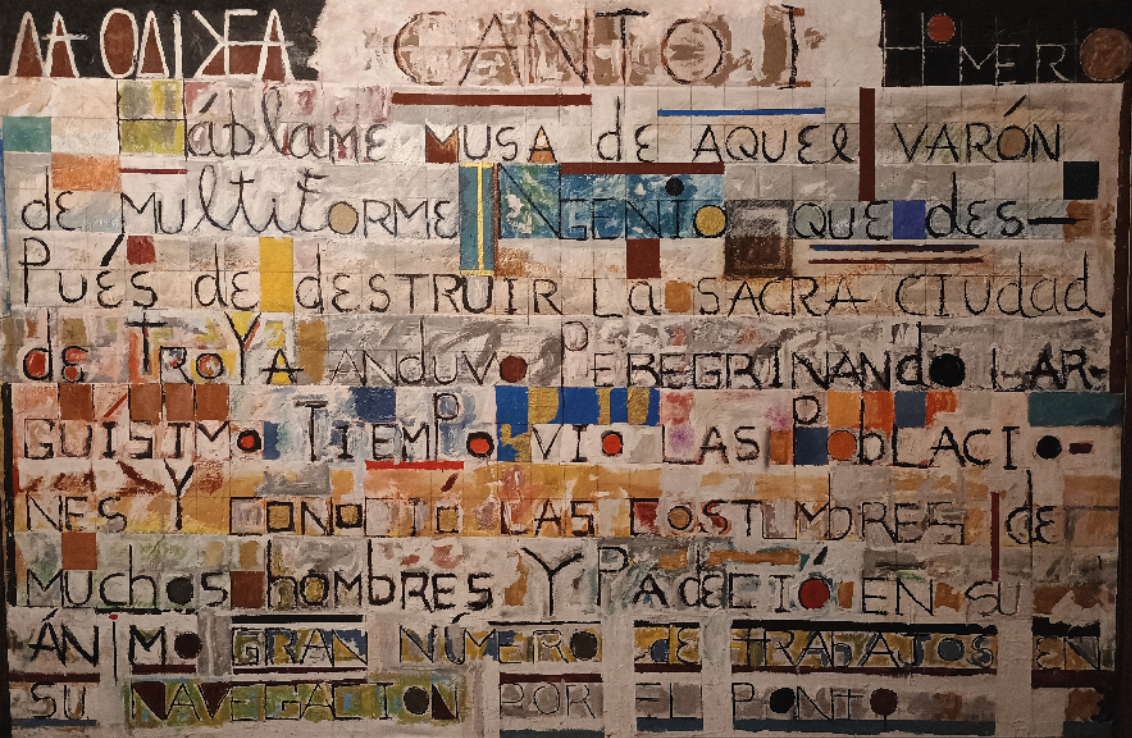 LA ODISEA CANTO I HOMERO
Háblame MUSA de AQUEL VARÓN
de MULTIFORME INGENIO QUE des-
Pués de deSTRUIR La SACRA CIUdad
de TROYA ANduVO PEREGRINANdO LAR-
GUÍSIMO TIEMPO VIO LAS PObLACIO-
NES Y CONOCIÓ LAS COSTUMbRES de
MUchos hombRES Y PAdECIÓ EN SU
ÁNiMO GRAN NÚMERO de TRAbAJOS EN
SU NAVEGACION POR EL PONTO